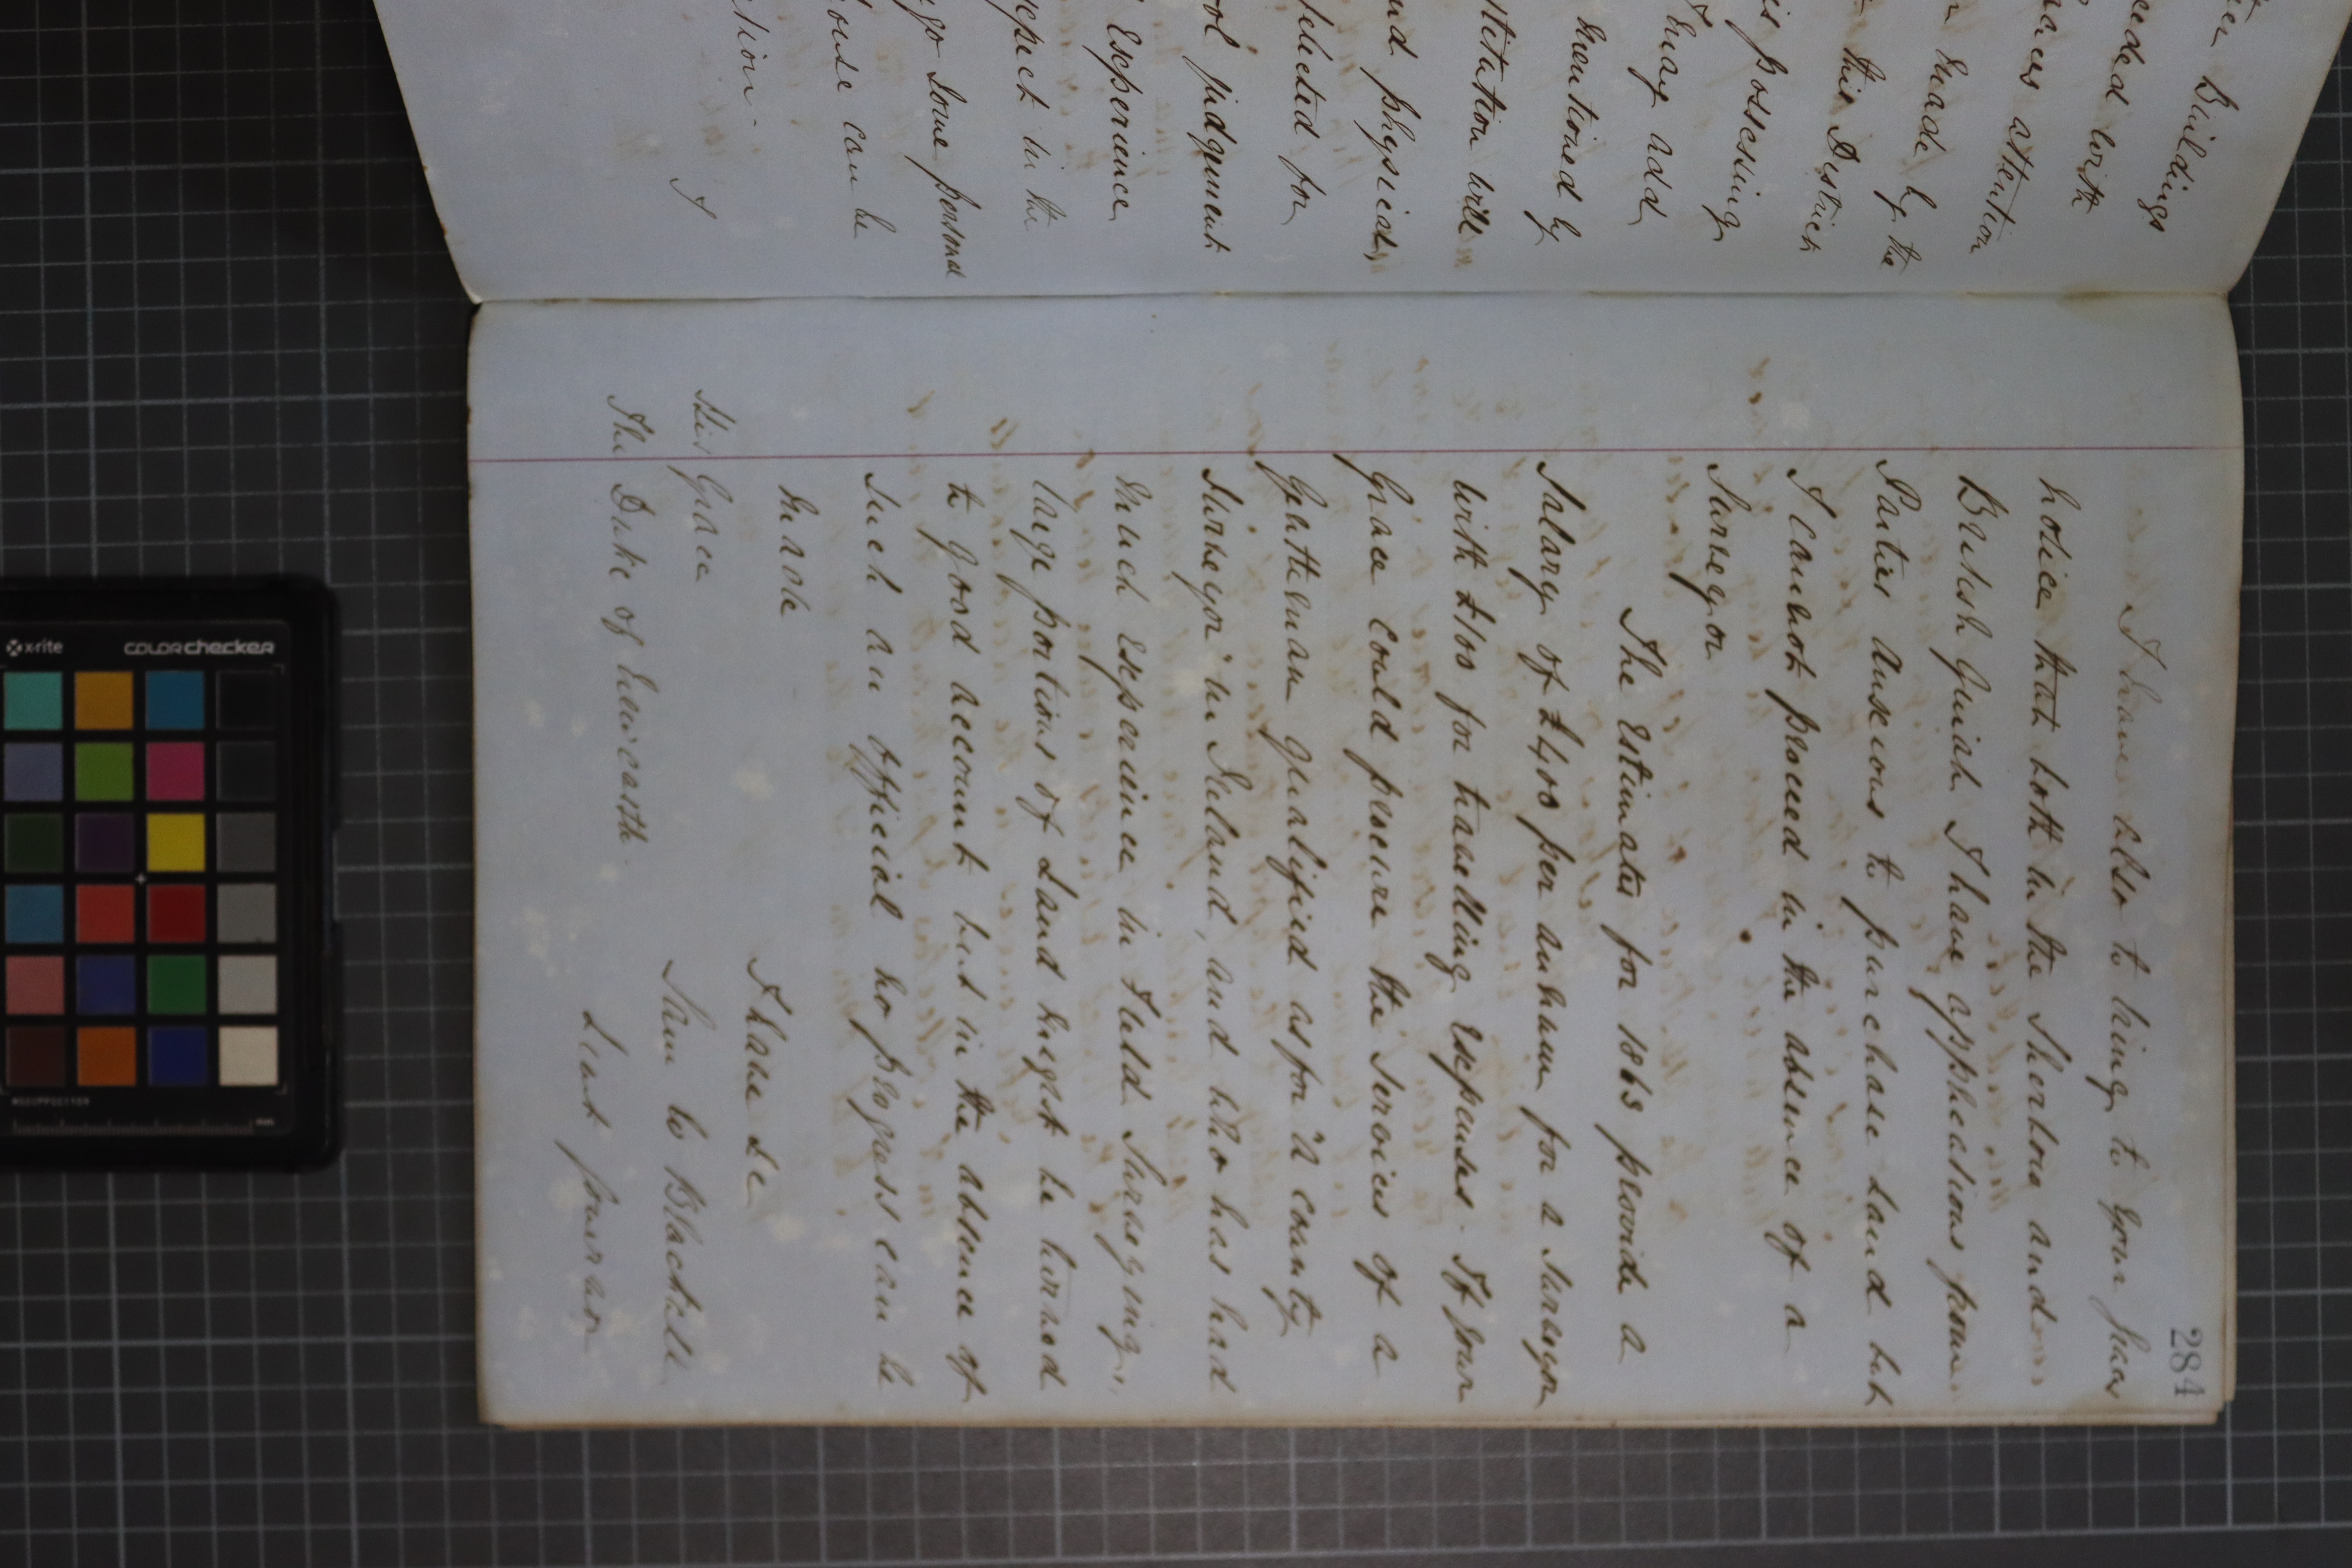 Buildings
ceded with
attention
made by the
this District
is possessing
I may add
mentioned by
stitution will
and physical
selected for
judgement
Experience
respect in the
go some personal
house can be
ction.
I
284
I have also to bring to your Grace's
notice that both in the Sherbro and
British Quiah I have applications from
Parties anxious to purchase Land but
I cannot proceed in the absence of a
Surveyor
The Estimates for 1863 provide a
Salary of £400 per annum for a Surveyor
with £100 for travelling Expenses. If your
Grace could procure the Services of a
Gentleman qualified as for "a County
Surveyor" in Ireland, and who has had
much Experience in Field Surveying,
large portions of Land might be turned
to good account but in the absence of
such an official no progress can be
made
I have &c
His Grace
Sam W Blackall
The Duke of Newcastle
Lieut Governor
x-rite
colorchecker